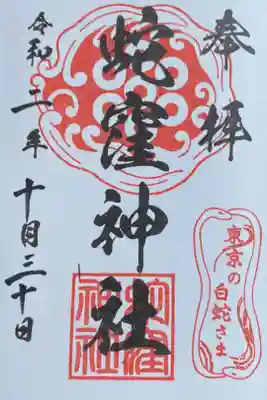 奉拝
蛇窪神社
令和二年 十月三十日
東京の
白蛇さま
蛇窪
神社